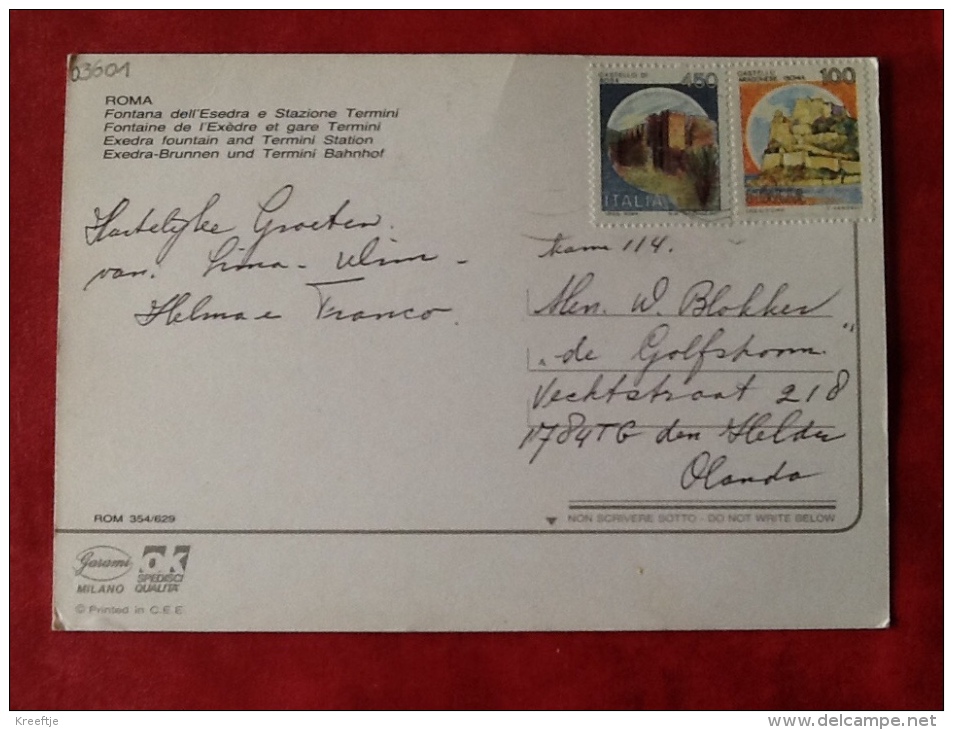 03601
ROMA
Fontana dell'Esedra e Stazione Termini
Fontaine de l'Exèdre et gare Termini
Exedra fountain and Termini Station
Exedra-Brunnen und Termini Bahnhof
CASTELLO DI BOSA 450
ITALIA
CASTELLO ARAGONESE ISCHIA 100
Hartelijke Groeten
van. Sima - Wim -
Helma e Franco.
kame 114.
Men. W. Blokker
"de Golfstroom"
Vechtstraat 218
1784TG den Helder
Olanda
ROM 354/629
NON SCRIVERE SOTTO - DO NOT WRITE BELOW
Garami
MILANO
OK
SPEDISCI
QUALITA'
© Printed in C.E.E.
Kreeftje
delcampe.net